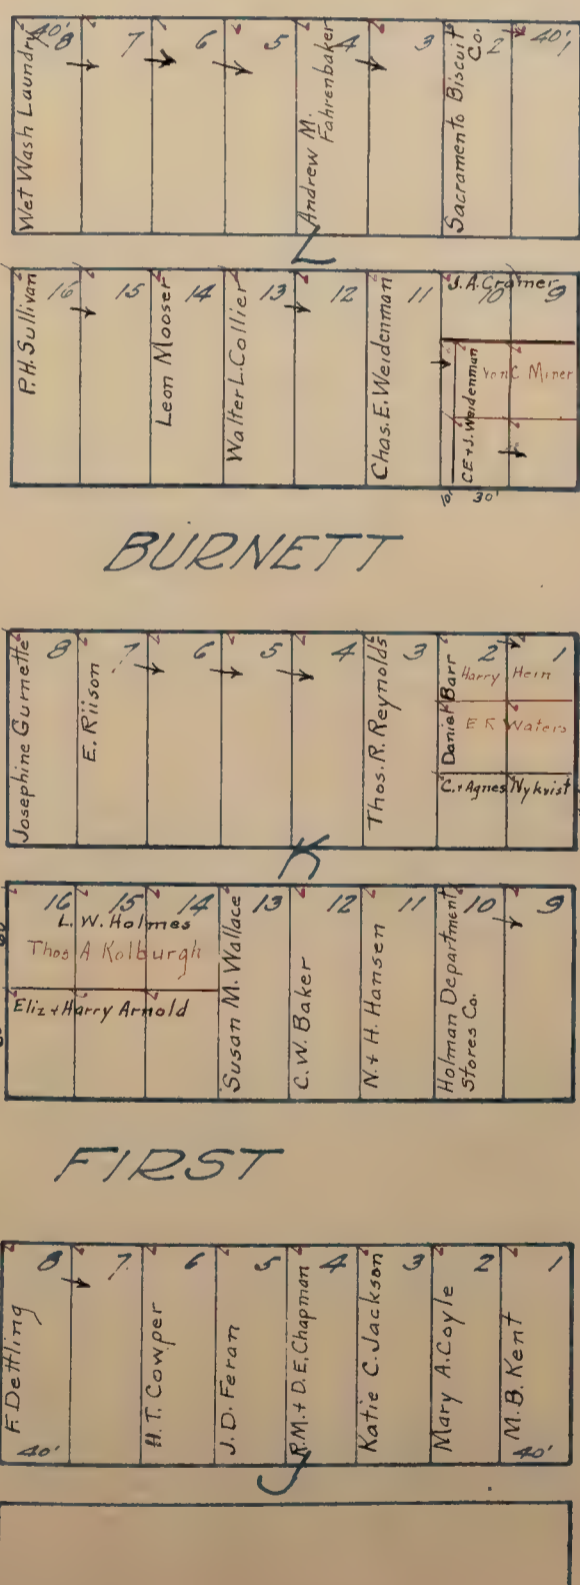 40' 8 7 6 5 4 3 2 40' 1
Wet Wash Laundry
Andrew M. Fahrenbaker
Sacramento Biscuit Co.
L
16 15 14 13 12 11 10 9
P.H. Sullivan
Leon Mooser
Walter L. Collier
Chas. E. Weidenman
J. A. Cramer
C Miner
CE + J. Weidenman
10' 30'
BURNETT
8 7 6 5 4 3 2 1
Josephine Gurnette
E. Riison
Thos. R. Reynolds
Daniel Barr
Harry Hein
E R Waters
C. + Agnes Nykvist
K
16 15 14 13 12 11 10 9
L. W. Holmes
Thos A Kolburgh
Eliz + Harry Arnold
Susan M. Wallace
C. W. Baker
N. + H. Hansen
Holman Department Stores Co.
FIRST
8 7 6 5 4 3 2 1
F. Dettling
H. T. Cowper
J. D. Feran
R. M. + D. E. Chapman
Katie C. Jackson
Mary A. Coyle
M. B. Kent
40' 40'
J